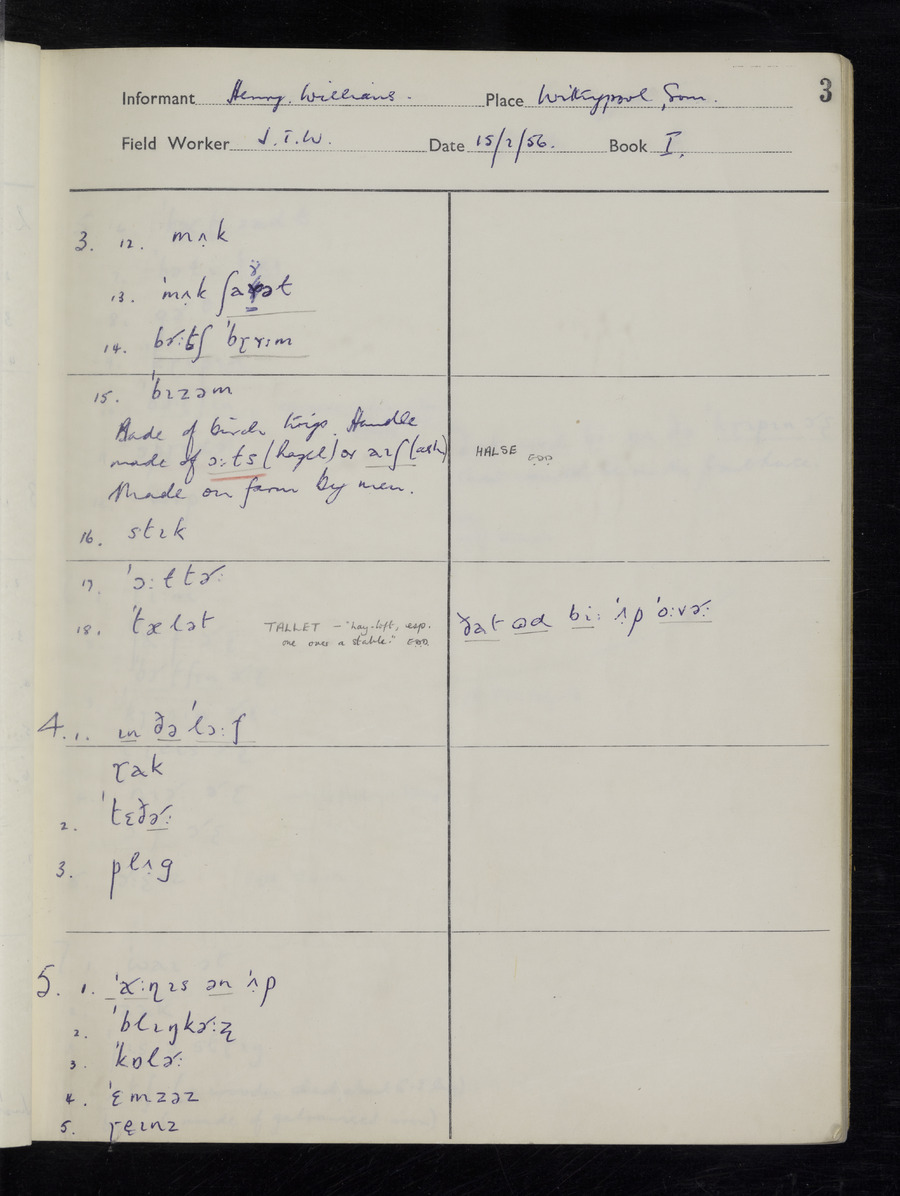 3
Informant Henry. Williams. Place Withypool, Som.
Field Worker J.T.W. Date 15/2/56. Book I.
3. 12. mʌk
13. ˈmʌk
14. bɚːtʃ ˈbɽɤɪm
15. ˈbɪzəm
Made of birch twigs. Handle
made of ɔːɫs (hazel) or aɪʃ (ash)
Made on farm by men.
HALSE EDD
16. stɪk
17. ˈɔːɫtɚː
18. ˈtælət
TALLET – "hay-loft, esp.
one over a stable." EDD.
ðat ɷd biː ˈʌp ˈoːvɚː
4. 1. ɪn ðə ˈləːf
ɽak
2. ˈtɛðɚː
3. plʌg
5. 1. ən ˈʌp
2. ˈblɪŋkɚːʐ
3. ˈkɒlɚː
4. ˈɛmzəz
5. ɽɛɪnz